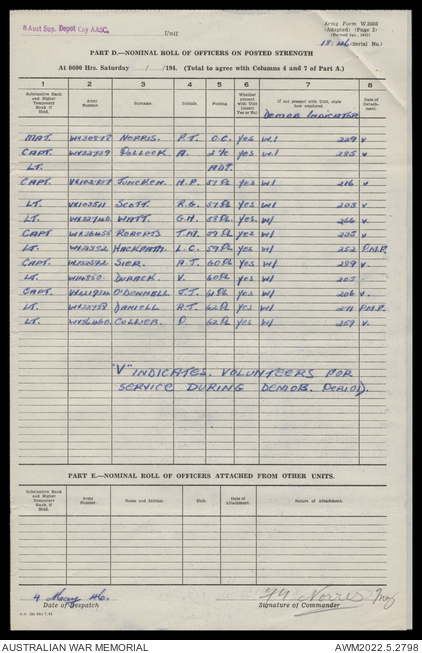 8 Aust Sup. Depot Coy AASC.
Unit
Army Form W.3008
(Adapted) (Page 2)
(Serial No.)
PART D.—NOMINAL ROLL OF OFFICERS ON POSTED STRENGTH
At 0600 Hrs. Saturday / /194. (Total to agree with Columns 4 and 7 of Part A.)
1 2 3 4 5 6 7 8
Substantive Rank and Higher Temporary Rank if Held. Army Number. Surname. Initials. Posting. Whether present with Unit (Insert Yes or No) If not present with Unit, state how employed. Date of Detachment.
DEMOB INDICATOR
MAJ. NORRIS. F.J. O.C. Yes W1 229 V
CAPT. POLLOCK. A. 2 I/C Yes W1 285 V
LT. ADJT.
CAPT. JUNCKEN. H.P. 57 PL Yes W1 216 V
LT. SCOTT. R.G. 57 PL Yes W1 205 V
LT. WATT. G.H. 58 PL Yes W1 266 V
CAPT ROBERTS J.M. 59 PL Yes W1 235 V
LT. HACKPATH. L.C. 59 PL Yes W1 252 P.M.P.
CAPT. SIER. A.J. 60 PL Yes W1 289 V
LT. DURACK V. 60 PL Yes W1 205
CAPT. O'DONNELL J.T. 61 PL Yes W1 206 V
LT. DANIELL R.T. 62 PL Yes W1 211 P.M.P.
LT. COLLIER. D. 62 PL Yes W1 259 V.
"V" INDICATES. VOLUNTEERS FOR
SERVICE DURING DEMOB. PERIOD.
PART E.—NOMINAL ROLL OF OFFICERS ATTACHED FROM OTHER UNITS.
Substantive Rank and Higher Temporary Rank if Held. Army Number. Name and Initials. Unit. Date of Attachment. Nature of Attachment.
4 May 46. Norris Maj
Date of Despatch Signature of Commander
AUSTRALIAN WAR MEMORIAL AWM2022.5.2798